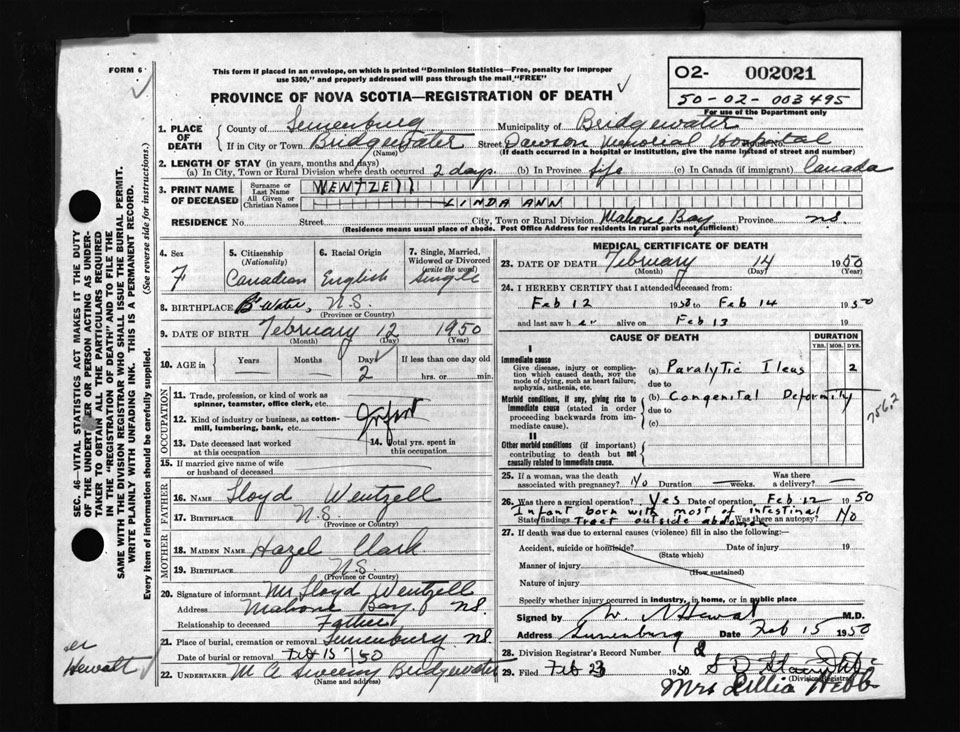 FORM 6
This form if placed in an envelope, on which is printed "Dominion Statistics—Free, penalty for improper
use $300," and properly addressed will pass through the mail "FREE"
O2- 002021
50-02-003495
For use of the Department only
PROVINCE OF NOVA SCOTIA—REGISTRATION OF DEATH
SEC. 46—VITAL STATISTICS ACT MAKES IT THE DUTY
OF THE UNDERTAKER OR PERSON ACTING AS UNDER-
TAKER TO OBTAIN ALL THE PARTICULARS REQUIRED
IN THE "REGISTRATION OF DEATH" AND TO FILE THE
SAME WITH THE DIVISION REGISTRAR WHO SHALL ISSUE THE BURIAL PERMIT.
WRITE PLAINLY WITH UNFADING INK. THIS IS A PERMANENT RECORD.
Every item of information should be carefully supplied. (See reverse side for instructions.)
1. PLACE OF DEATH
County of Lunenburg Municipality of Bridgewater
If in City or Town Bridgewater Street Dawson Memorial Hospital House No.
(Name) (If death occurred in a hospital or institution, give the name instead of street and number)
2. LENGTH OF STAY (in years, months and days)
(a) In City, Town or Rural Division where death occurred 2 days. (b) In Province life (c) In Canada (if immigrant) Canada
3. PRINT NAME OF DECEASED
Surname or Last Name WENTZELL
All Given or Christian Names LINDA ANN
RESIDENCE No. Street City, Town or Rural Division Mahone Bay Province N.S.
(Residence means usual place of abode. Post Office Address for residents in rural parts not sufficient)
4. Sex 5. Citizenship (Nationality) 6. Racial Origin 7. Single, Married, Widowed or Divorced (write the word)
F Canadian English Single
8. BIRTHPLACE B'Water, N.S.
(Province or Country)
9. DATE OF BIRTH February 12 1950
(Month) (Day) (Year)
10. AGE in Years Months Days If less than one day old
2 hrs. or min.
OCCUPATION
11. Trade, profession, or kind of work as
spinner, teamster, office clerk, etc.
12. Kind of industry or business, as cotton-
mill, lumbering, bank, etc. Infant
13. Date deceased last worked at this occupation 14. Total yrs. spent in this occupation
15. If married give name of wife
or husband of deceased
FATHER
16. NAME Lloyd Wentzell
17. BIRTHPLACE N.S.
(Province or Country)
MOTHER
18. MAIDEN NAME Hazel Clark
19. BIRTHPLACE N.S.
(Province or Country)
20. Signature of informant Mr Lloyd Wentzell
Address Mahone Bay. N.S.
Relationship to deceased Father
21. Place of burial, cremation or removal Lunenburg N.S.
Date of burial or removal Feb 15/50
22. UNDERTAKER M A Sweeny Bridgewater
(Name and address)
er
Hewatt
MEDICAL CERTIFICATE OF DEATH
23. DATE OF DEATH February 14 1950
(Month) (Day) (Year)
24. I HEREBY CERTIFY that I attended deceased from:
Feb 12 1950 to Feb 14 1950
and last saw her alive on Feb 13 19
CAUSE OF DEATH DURATION
YRS. MOS. DYS.
I
Immediate cause
Give disease, injury or complica-
tion which caused death, NOT the
mode of dying, such as heart failure,
asphyxia, asthenia, etc.
(a) Paralytic Ileus 2
due to
Morbid conditions, if any, giving rise to
immediate cause (stated in order
proceeding backwards from im-
mediate cause).
(b) Congenital Deformity
due to
(c)
756.2
II
Other morbid conditions (if important)
contributing to death but not
causally related to immediate cause.
25. If a woman, was the death associated with pregnancy? No Duration weeks. Was there a delivery?
26. Was there a surgical operation? Yes Date of operation Feb 12 1950
Infant born with most of intestinal
State findings Tract outside abdomen Was there an autopsy? No
27. If death was due to external causes (violence) fill in also the following:
Accident, suicide or homicide? Date of injury 19
(State which)
Manner of injury
(How sustained)
Nature of injury
Specify whether injury occurred in industry, in home, or in public place
Signed by W. Hewat M.D.
Address Lunenburg Date Feb 15 1950
28. Division Registrar's Record Number
29. Filed Feb 23 1950
(Division Registrar)
Mrs Lillia Webb